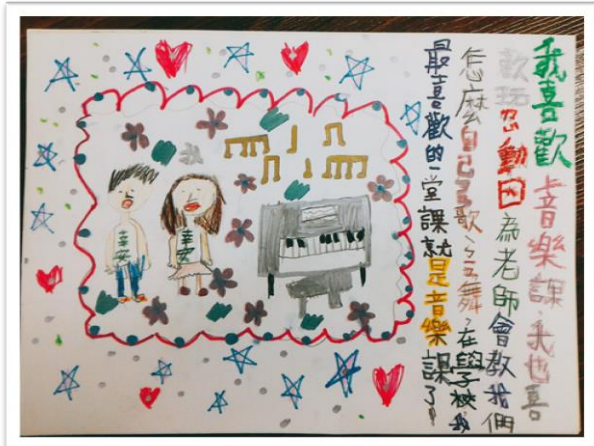 我喜歡音樂課,我也喜
歡玩動因為老師會教我們
怎麼自己歌、舞,在學校我
最喜歡的一堂課就是音樂課了!
幸安
幸安